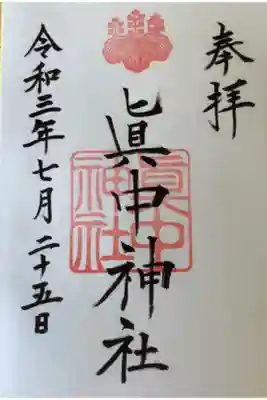 奉拝
眞中神社
令和三年七月二十五日
眞中
神社